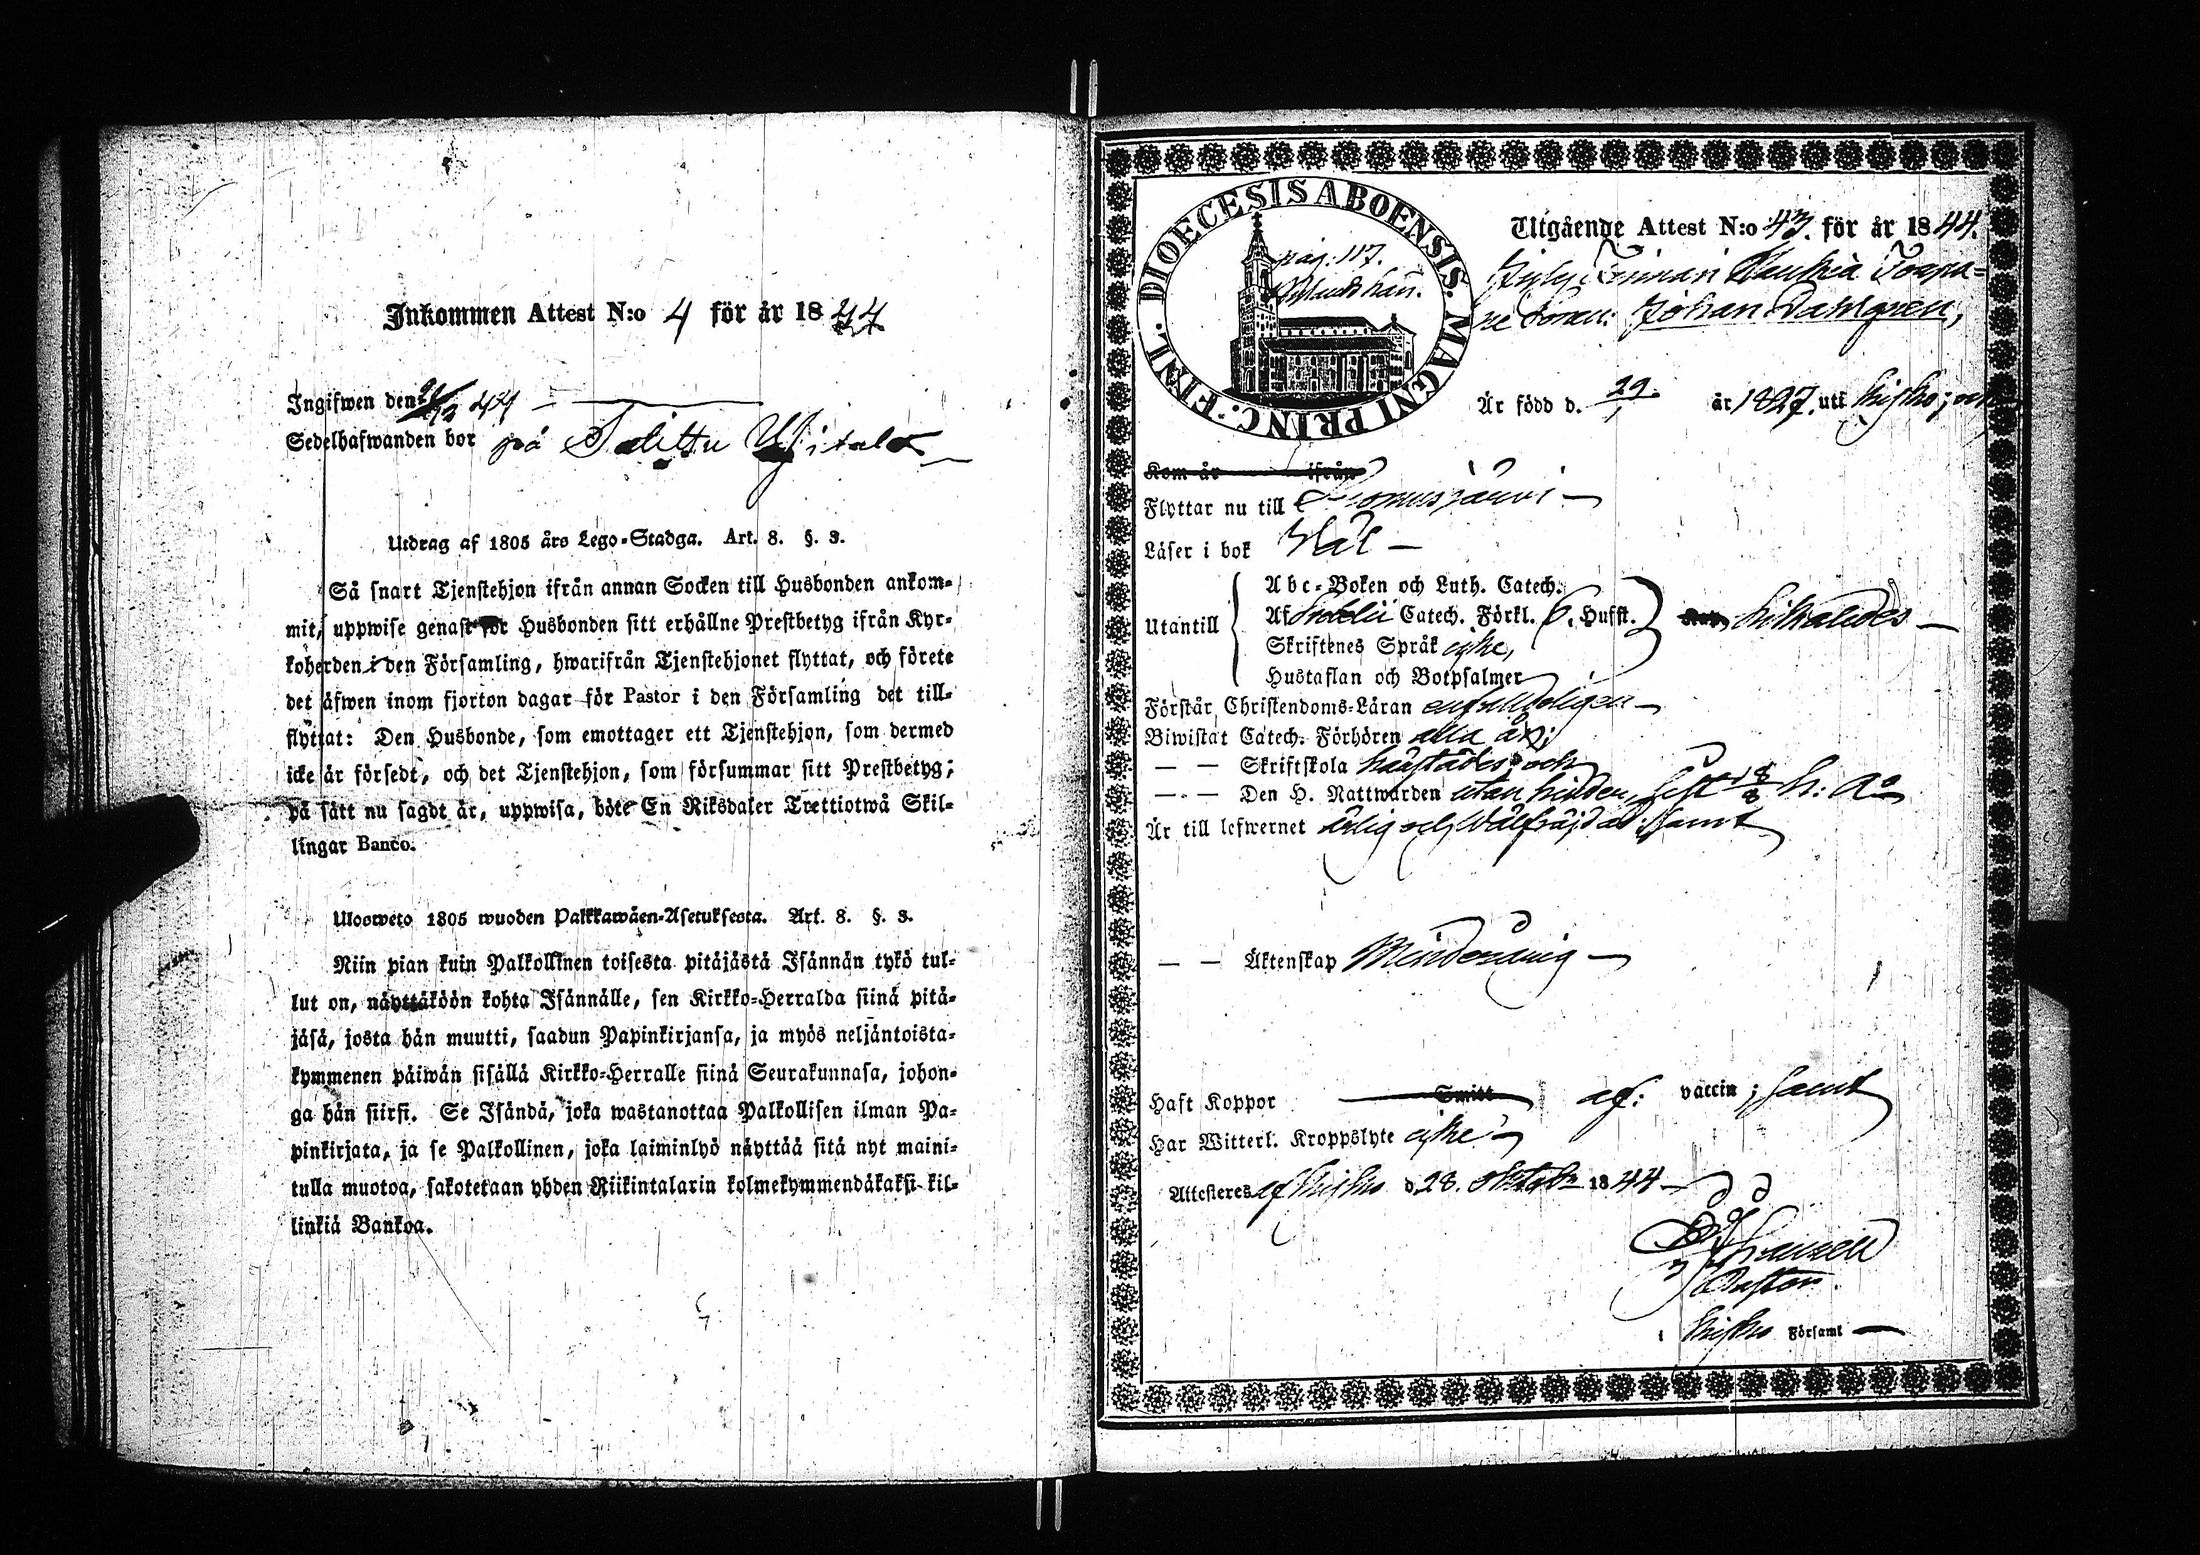 Inkommen Attest N:o 4 för år 1844
Ingifwen den 44
Sedelhafwanden bor på
Utdrag af 1805 års Lego-Stadga. Art. 8. §. 3.
Så snart Tjenstehjon ifrån annan Socken till Husbonden ankom-
mit, uppwise genast för Husbonden sitt erhållne Prestbetyg ifrån Kyr-
koherden i den Församling, hwarifrån Tjenstehjonet flyttat, och förete
det äfwen inom fjorton dagar för Pastor i den Församling det till-
flyttat: Den Husbonde, som emottager ett Tjenstehjon, som dermed
icke är försedt, och det Tjenstehjon, som försummar sitt Prestbetyg,
på sätt nu sagdt är, uppwisa, böte En Riksdaler Trettiotwå Skil-
lingar Banco.
Ulosweto 1805 wuoden Palkkawäen-Asetuksesta. Art. 8. §. 3.
Niin pian kuin Palkollinen toisesta pitäjästä Isännän tykö tul-
lut on, näyttäköön kohta Isännälle, sen Kirkko-Herralda siinä pitä-
jäsä, josta hän muutti, saadun Papinkirjansa, ja myös neljäntoista-
kymmenen päiwän sisällä Kirkko-Herralle siinä Seurakunnasa, johon-
ga hän siirsi. Se Isändä, joka wastanottaa Palkollisen ilman Pa-
pinkirjata, ja se Palkollinen, joka laiminlyö näyttää sitä nyt maini-
tulla muotoa, sakotetaan yhden Riikintalarin kolmekymmendäkaksi kil-
linkiä Bankoa.
DIOECESIS ABOENSIS. MAGNI PRINC: FINL.
pag. 117.
Utgående Attest N:o 43. för år 1844.
Johan Dahlgren,
Är född d. 29/1 år 1827. uti Kisko; och
Kom år ifrån
Flyttar nu till
Läser i bok Väl
Utantill
Abc-Boken och Luth. Catech.
Af Svebelii Catech. Förkl. 6. Hufst.
Skriftenes Språk icke,
Hustaflan och Botpsalmer
Förstår Christendoms-Läran enfaldeligen
Biwistat Catech. Förhören alla år;
— — Skriftskola härstädes och
— — Den H. Nattwarden utan hinder, sist 18/8 h: a:
Är till lefwernet ärlig och wälfräjdad; samt
— — Äktenskap Minderårig
Haft Koppor Smitt af: vaccin; samt
Har Witterl. Kroppslyte icke
Attesteres af Kisko d 28. Oktobr 1844
Pastor.
i Kisko Församl